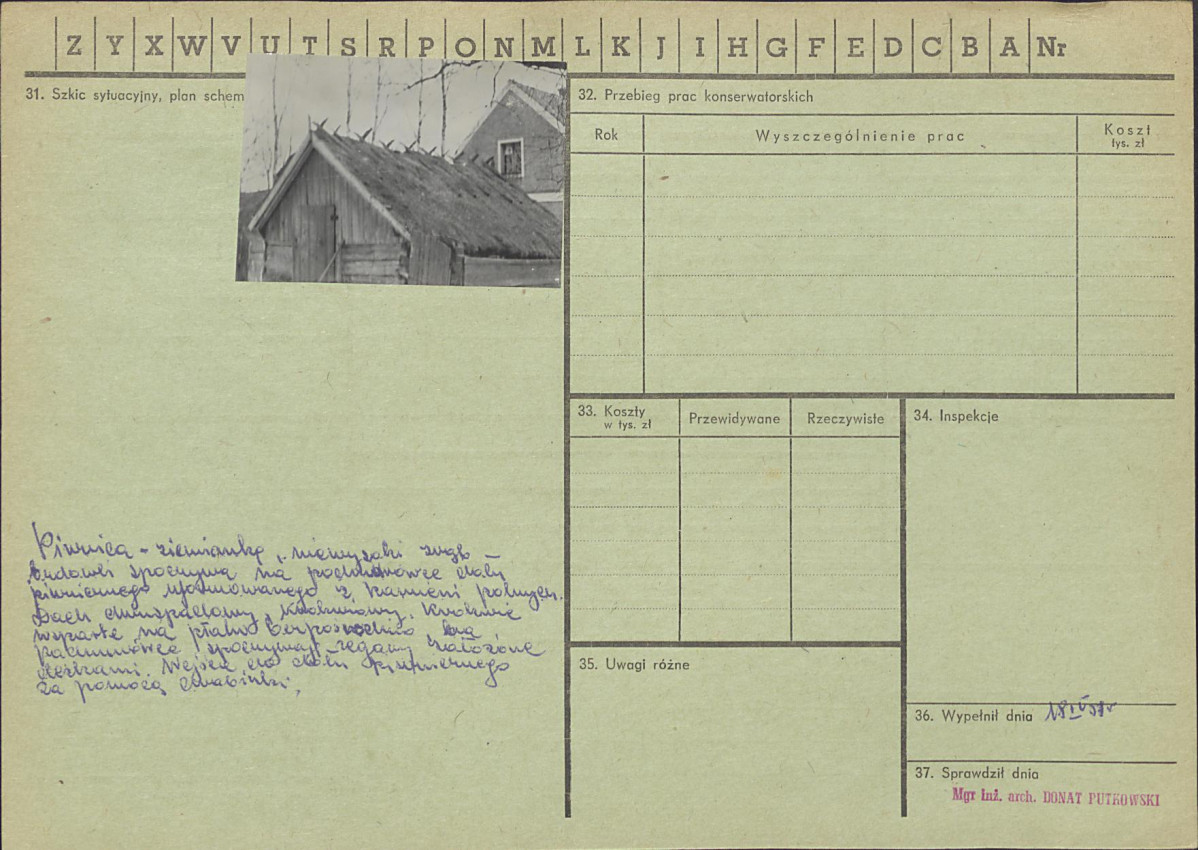 Z Y X W V U T S R P O N M L K J I H G F E D C B A Nr
31. Szkic sytuacyjny, plan schem
32. Przebieg prac konserwatorskich
Rok
Wyszczególnienie prac
Koszt
tys. zł
33. Koszty
w tys. zł
Przewidywane
Rzeczywiste
34. Inspekcje
Piwnica - ziemianka, niewysoki zrąb -
budowli spoczywa na podmurówce doły
piwnicznego uformowanego z kamieni polnych.
Dach dwuspadowy, krokwiowy. Krokwie
wsparte na płatwi bezpośrednio na
podmurówce spoczywają
deskami. Wejście do dołu piwnicznego
za pomocą drabinki,
35. Uwagi różne
36. Wypełnił dnia
37. Sprawdził dnia
Mgr inż. arch. DONAT PUTKOWSKI